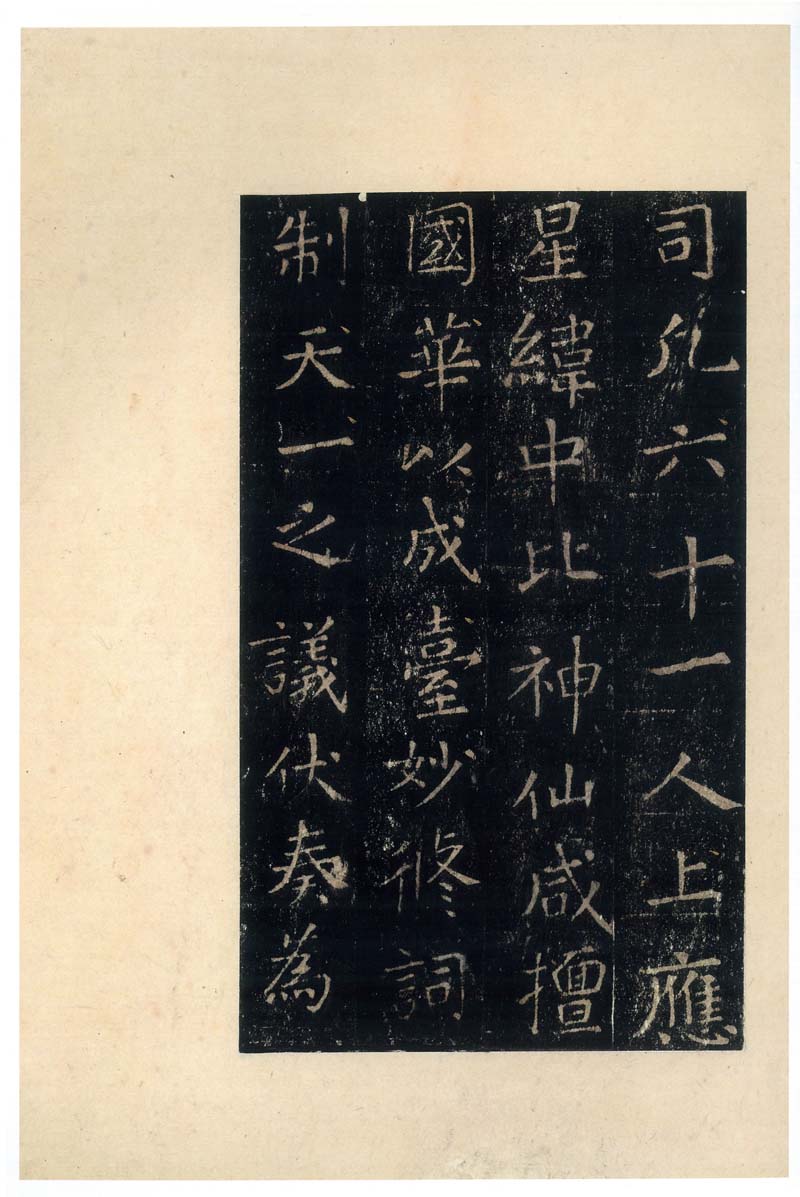 司凡六十一人上應
星緯中比神仙咸擅
國華以成臺妙修詞
制天一之議伏奏為